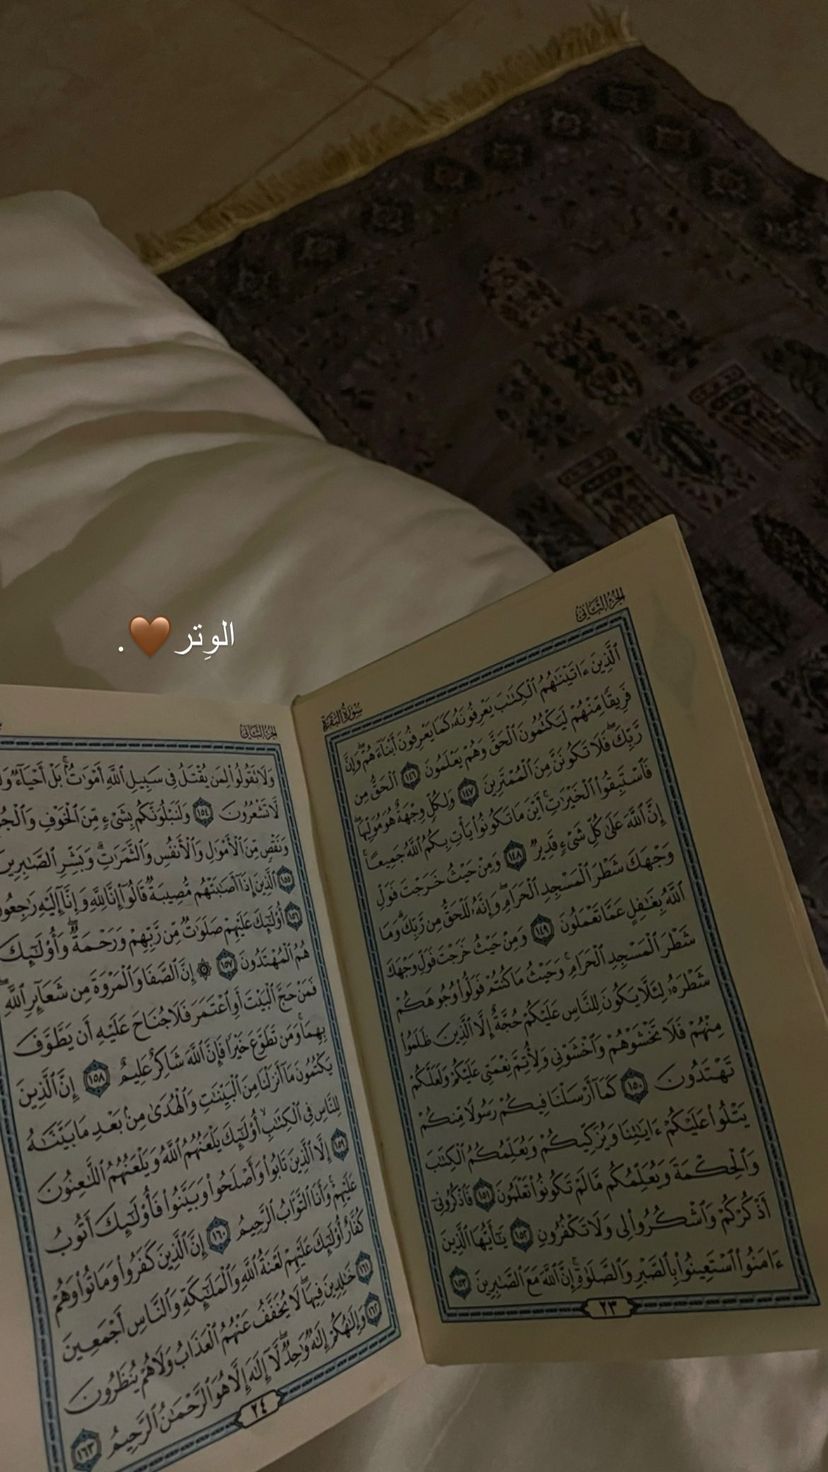 الوِتر🤎.
الجزء الثاني
سورة البقرة
ٱلَّذِينَ ءَاتَيۡنَٰهُمُ ٱلۡكِتَٰبَ يَعۡرِفُونَهُۥ كَمَا يَعۡرِفُونَ أَبۡنَآءَهُمۡۖ وَإِنَّ
فَرِيقٗا مِّنۡهُمۡ لَيَكۡتُمُونَ ٱلۡحَقَّ وَهُمۡ يَعۡلَمُونَ ١٤٦ ٱلۡحَقُّ مِن
رَّبِّكَ فَلَا تَكُونَنَّ مِنَ ٱلۡمُمۡتَرِينَ ١٤٧ وَلِكُلّٖ وِجۡهَةٌ هُوَ مُوَلِّيهَاۖ
فَٱسۡتَبِقُواْ ٱلۡخَيۡرَٰتِۚ أَيۡنَ مَا تَكُونُواْ يَأۡتِ بِكُمُ ٱللَّهُ جَمِيعًاۚ
إِنَّ ٱللَّهَ عَلَىٰ كُلِّ شَيۡءٖ قَدِيرٞ ١٤٨ وَمِنۡ حَيۡثُ خَرَجۡتَ فَوَلِّ
وَجۡهَكَ شَطۡرَ ٱلۡمَسۡجِدِ ٱلۡحَرَامِۖ وَإِنَّهُۥ لَلۡحَقُّ مِن رَّبِّكَۗ وَمَا
ٱللَّهُ بِغَٰفِلٍ عَمَّا تَعۡمَلُونَ ١٤٩ وَمِنۡ حَيۡثُ خَرَجۡتَ فَوَلِّ وَجۡهَكَ
شَطۡرَ ٱلۡمَسۡجِدِ ٱلۡحَرَامِۚ وَحَيۡثُ مَا كُنتُمۡ فَوَلُّواْ وُجُوهَكُمۡ
شَطۡرَهُۥ لِئَلَّا يَكُونَ لِلنَّاسِ عَلَيۡكُمۡ حُجَّةٌ إِلَّا ٱلَّذِينَ ظَلَمُواْ
مِنۡهُمۡ فَلَا تَخۡشَوۡهُمۡ وَٱخۡشَوۡنِي وَلِأُتِمَّ نِعۡمَتِي عَلَيۡكُمۡ وَلَعَلَّكُمۡ
تَهۡتَدُونَ ١٥٠ كَمَآ أَرۡسَلۡنَا فِيكُمۡ رَسُولٗا مِّنكُمۡ
يَتۡلُواْ عَلَيۡكُمۡ ءَايَٰتِنَا وَيُزَكِّيكُمۡ وَيُعَلِّمُكُمُ ٱلۡكِتَٰبَ
وَٱلۡحِكۡمَةَ وَيُعَلِّمُكُم مَّا لَمۡ تَكُونُواْ تَعۡلَمُونَ ١٥١ فَٱذۡكُرُونِيٓ
أَذۡكُرۡكُمۡ وَٱشۡكُرُواْ لِي وَلَا تَكۡفُرُونِ ١٥٢ يَٰٓأَيُّهَا ٱلَّذِينَ
ءَامَنُواْ ٱسۡتَعِينُواْ بِٱلصَّبۡرِ وَٱلصَّلَوٰةِۚ إِنَّ ٱللَّهَ مَعَ ٱلصَّٰبِرِينَ ١٥٣
٢٣
الجزء الثاني
وَلَا تَقُولُواْ لِمَن يُقۡتَلُ فِي سَبِيلِ ٱللَّهِ أَمۡوَٰتُۢۚ بَلۡ أَحۡيَآءٞ
لَّا تَشۡعُرُونَ ١٥٤ وَلَنَبۡلُوَنَّكُم بِشَيۡءٖ مِّنَ ٱلۡخَوۡفِ
وَنَقۡصٖ مِّنَ ٱلۡأَمۡوَٰلِ وَٱلۡأَنفُسِ وَٱلثَّمَرَٰتِۗ وَبَشِّرِ ٱلصَّٰبِرِينَ
١٥٥ ٱلَّذِينَ إِذَآ أَصَٰبَتۡهُم مُّصِيبَةٞ قَالُوٓاْ إِنَّا لِلَّهِ وَإِنَّآ إِلَيۡهِ رَٰجِعُونَ
١٥٦ أُوْلَٰٓئِكَ عَلَيۡهِمۡ صَلَوَٰتٞ مِّن رَّبِّهِمۡ وَرَحۡمَةٞۖ وَأُوْلَٰٓئِكَ
هُمُ ٱلۡمُهۡتَدُونَ ١٥٧ ۞ إِنَّ ٱلصَّفَا وَٱلۡمَرۡوَةَ مِن شَعَآئِرِ ٱللَّهِۖ
فَمَنۡ حَجَّ ٱلۡبَيۡتَ أَوِ ٱعۡتَمَرَ فَلَا جُنَاحَ عَلَيۡهِ أَن يَطَّوَّفَ
بِهِمَاۚ وَمَن تَطَوَّعَ خَيۡرٗا فَإِنَّ ٱللَّهَ شَاكِرٌ عَلِيمٌ ١٥٨ إِنَّ ٱلَّذِينَ
يَكۡتُمُونَ مَآ أَنزَلۡنَا مِنَ ٱلۡبَيِّنَٰتِ وَٱلۡهُدَىٰ مِنۢ بَعۡدِ مَا بَيَّنَّٰهُ
لِلنَّاسِ فِي ٱلۡكِتَٰبِ أُوْلَٰٓئِكَ يَلۡعَنُهُمُ ٱللَّهُ وَيَلۡعَنُهُمُ ٱللَّٰعِنُونَ
١٥٩ إِلَّا ٱلَّذِينَ تَابُواْ وَأَصۡلَحُواْ وَبَيَّنُواْ فَأُوْلَٰٓئِكَ أَتُوبُ
عَلَيۡهِمۡ وَأَنَا ٱلتَّوَّابُ ٱلرَّحِيمُ ١٦٠ إِنَّ ٱلَّذِينَ كَفَرُواْ وَمَاتُواْ وَهُمۡ
كُفَّارٌ أُوْلَٰٓئِكَ عَلَيۡهِمۡ لَعۡنَةُ ٱللَّهِ وَٱلۡمَلَٰٓئِكَةِ وَٱلنَّاسِ أَجۡمَعِينَ
١٦١ خَٰلِدِينَ فِيهَا لَا يُخَفَّفُ عَنۡهُمُ ٱلۡعَذَابُ وَلَا هُمۡ يُنظَرُونَ
١٦٢ وَإِلَٰهُكُمۡ إِلَٰهٞ وَٰحِدٞۖ لَّآ إِلَٰهَ إِلَّا هُوَ ٱلرَّحۡمَٰنُ ٱلرَّحِيمُ ١٦٣
٢٤